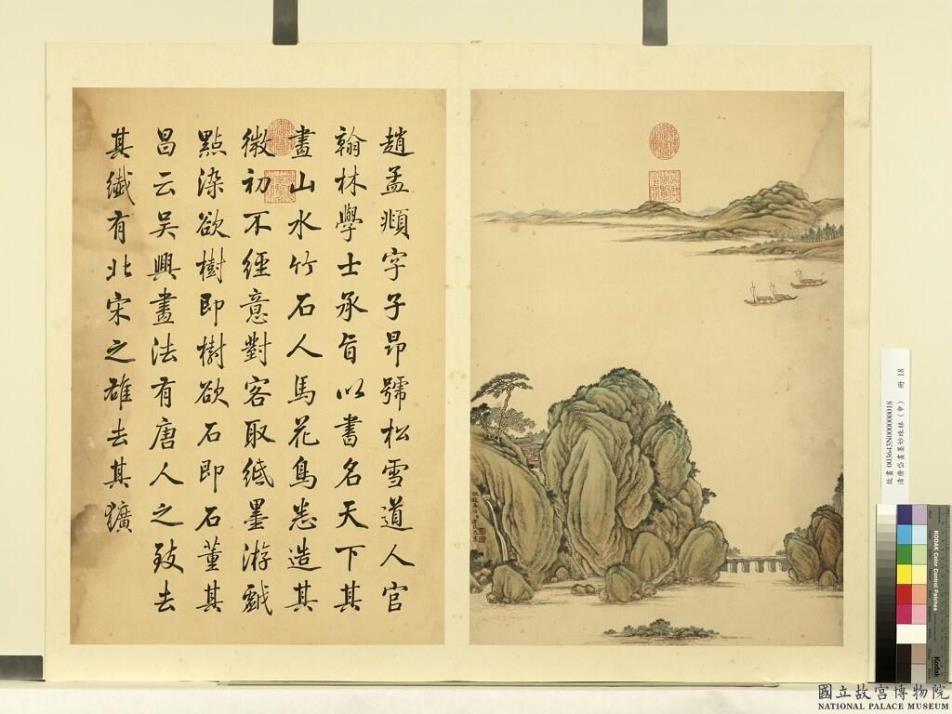 趙孟頫字子昂號松雪道人官
翰林學士承旨以書名天下其
畫山水竹石人馬花鳥悉造其
微初不經意對客取紙墨游戲
點染欲樹即樹欲石即石董其
昌云吳興畫法有唐人之致去
其纖有北宋之雄去其獷
故畫 003643N000000018
清唐岱畫墨妙珠林（申） 冊 18
KODAK Color Control Patches
Kodak
國立故宮博物院
NATIONAL PALACE MUSEUM